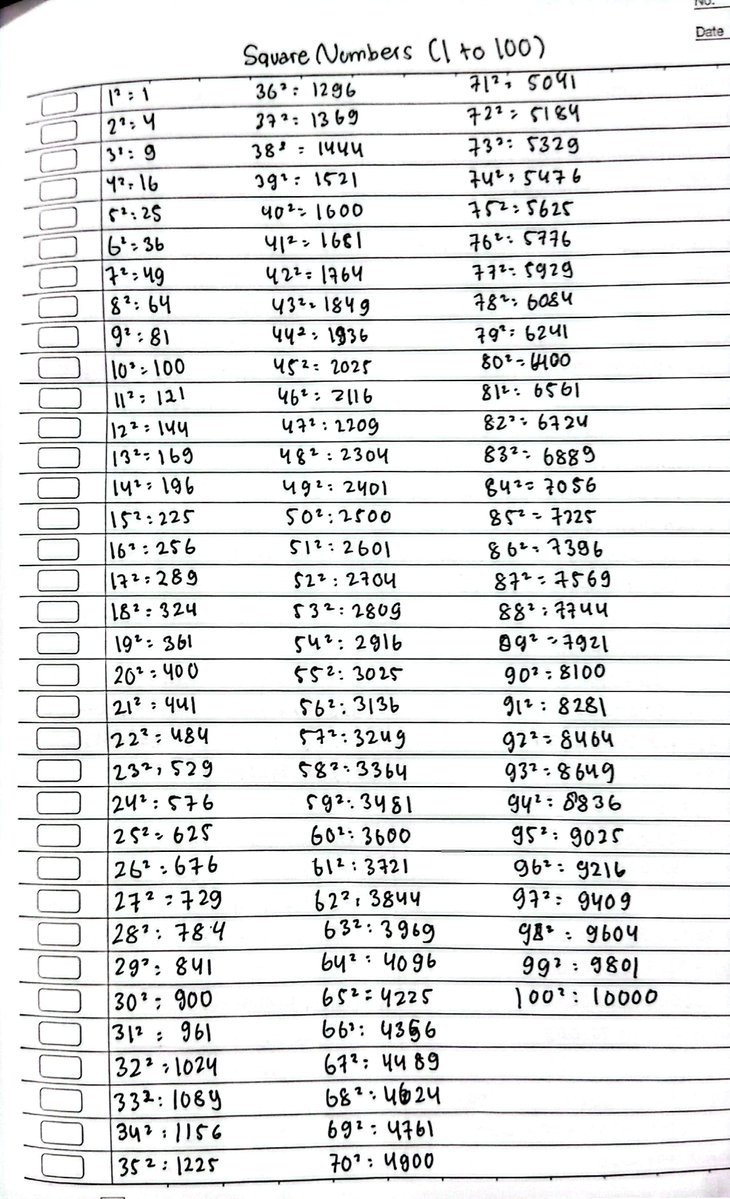 No.
Date
Square Numbers (1 to 100)
1² : 1
2² : 4
3² : 9
4² : 16
5² : 25
6² : 36
7² : 49
8² : 64
9² : 81
10² : 100
11² : 121
12² : 144
13² : 169
14² : 196
15² : 225
16² : 256
17² : 289
18² : 324
19² : 361
20² : 400
21² : 441
22² : 484
23² : 529
24² : 576
25² : 625
26² : 676
27² : 729
28² : 784
29² : 841
30² : 900
31² : 961
32² : 1024
33² : 1089
34² : 1156
35² : 1225
36² : 1296
37² : 1369
38² : 1444
39² : 1521
40² : 1600
41² : 1681
42² : 1764
43² : 1849
44² : 1936
45² : 2025
46² : 2116
47² : 2209
48² : 2304
49² : 2401
50² : 2500
51² : 2601
52² : 2704
53² : 2809
54² : 2916
55² : 3025
56² : 3136
57² : 3249
58² : 3364
59² : 3481
60² : 3600
61² : 3721
62² : 3844
63² : 3969
64² : 4096
65² = 4225
66² : 4356
67² : 4489
68² : 4624
69² : 4761
70² : 4900
71² : 5041
72² : 5184
73² : 5329
74² : 5476
75² : 5625
76² : 5776
77² : 5929
78² : 6084
79² : 6241
80² = 6400
81² : 6561
82² : 6724
83² : 6889
84² = 7056
85² = 7225
86² : 7396
87² = 7569
88² : 7744
89² = 7921
90² : 8100
91² : 8281
92² = 8464
93² : 8649
94² : 8836
95² : 9025
96² : 9216
97² : 9409
98² : 9604
99² : 9801
100² : 10000